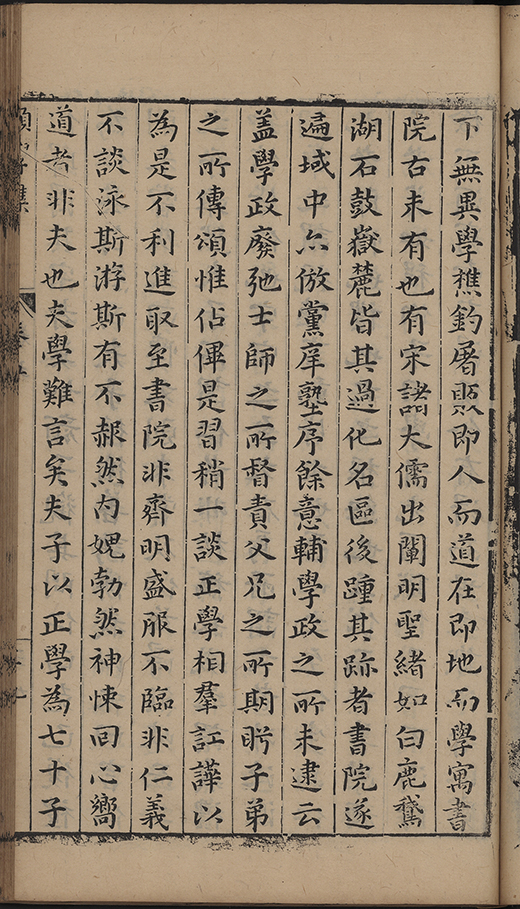 下無異學樵釣屠販即人而道在即地而學寓書
院古未有也有宋諸大儒出闡明聖緒如白鹿鵞
湖石鼓嶽麓皆其過化名區後踵其跡者書院遂
遍域中亦倣黨庠塾序餘意輔學政之所未逮云
蓋學政廢弛士師之所督責父兄之所期盻子弟
之所傳頌惟佔俾是習稍一談正學相羣訌譁以
為是不利進取至書院非齊明盛服不臨非仁義
不談泳斯游斯有不赧然內媿勃然神悚回心嚮
道者非夫也夫學難言矣夫子以正學為七十子